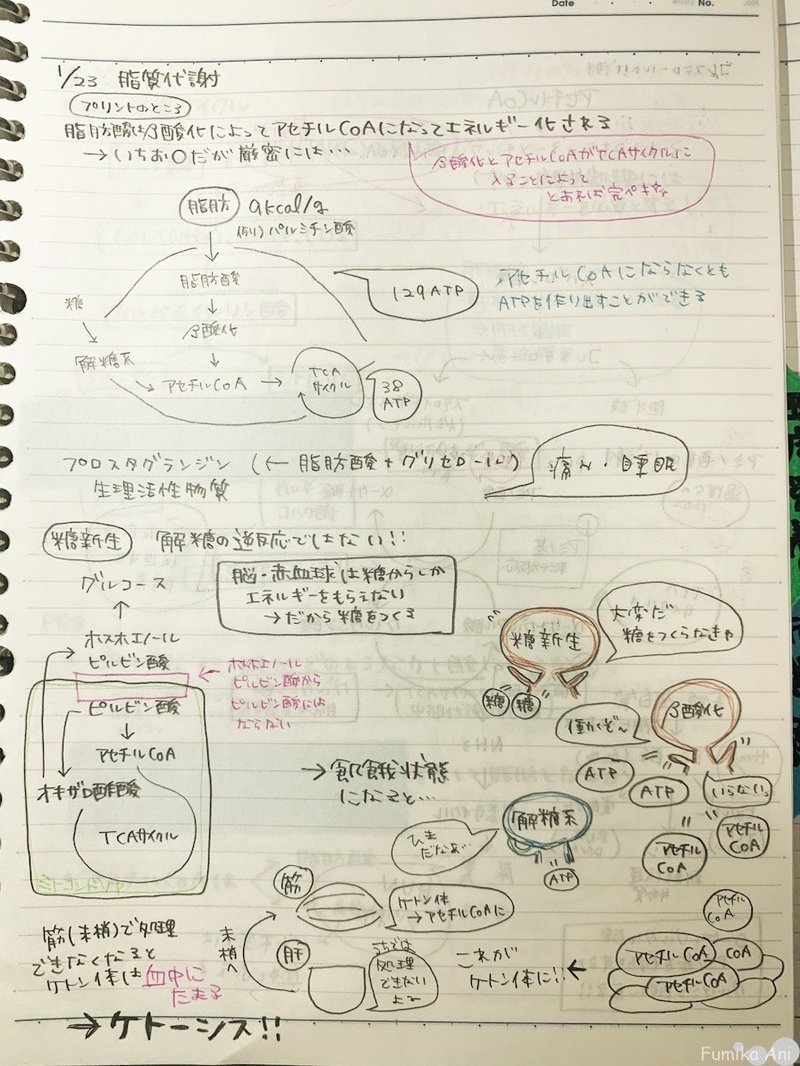 Date
No.
1/23 脂質代謝
プリントのところ
脂肪酸はβ酸化によってアセチルCoAになってエネルギー化される
→いちお〇だが厳密には…
β酸化とアセチルCoAがTCAサイクルに
入ることによって
とあれば完ペキ
脂肪 9kcal/g
(例)パルミチン酸
脂肪酸
↓
β酸化
↓
糖
解糖系
→アセチルCoA→
TCA
サイクル
129ATP
38
ATP
アセチルCoAにならなくとも
ATPを作り出すことができる
プロスタグランジン (←脂肪酸+グリセロール)
生理活性物質
痛み・睡眠
糖新生 解糖の逆反応ではない!!
脳・赤血球は糖からしか
エネルギーをもらえない
→だから糖をつくる
グルコース
↑
ホスホエノール
ピルビン酸
←ホスホエノール
ピルビン酸から
ピルビン酸には
ならない
ピルビン酸
↓
アセチルCoA
オキサロ酢酸
TCAサイクル
ミトコンドリア
→飢餓状態
になると…
糖新生
大変だ
糖をつくらなきゃ
糖
糖
β酸化
働かぞ〜
ATP
ATP
いらない。
アセチル
CoA
アセチル
CoA
解糖系
ひま
だなぁ…
ATP
アセチル
CoA
アセチルCoA
CoA
アセチルCoA
←
これが
ケトン体に!!
筋
ケトン体
→アセチルCoAに
末梢へ
肝
うちでは
処理
できない
よる
筋(末梢)で処理
できなくなると
ケトン体は血中に
たまる
→ケトーシス!!
Fumika Ani